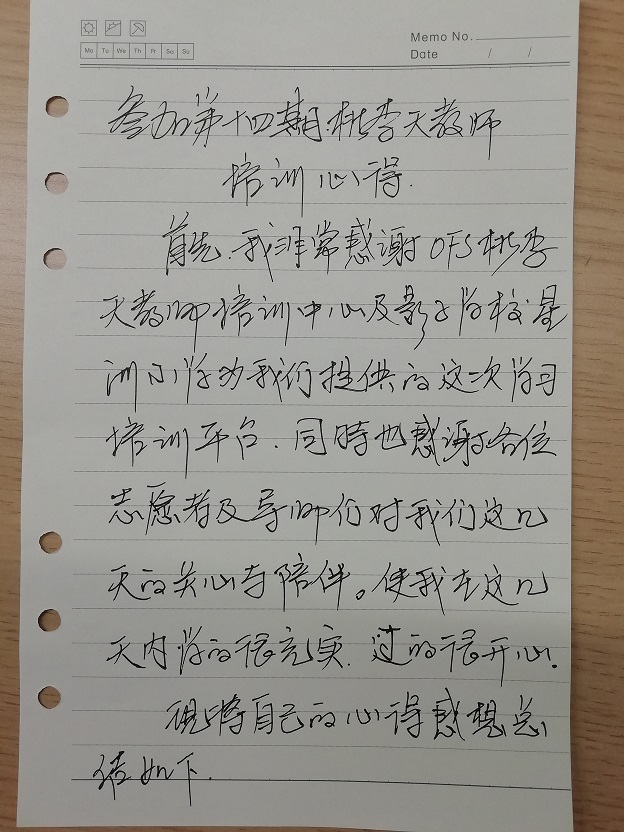 Memo No.
Mo Tu We Th Fr Sa Su
Date / /
参加第十四期桃李天教师
培训心得.
首先.我非常感谢OFS桃李
天教师培训中心及影子学校星
洲小学为我们提供的这次学习
培训平台.同时也感谢各位
志愿者及导师们对我们这几
天的关心与陪伴。使我在这几
天内学的很充实.过的很开心.
现将自己的心得感想总
结如下.